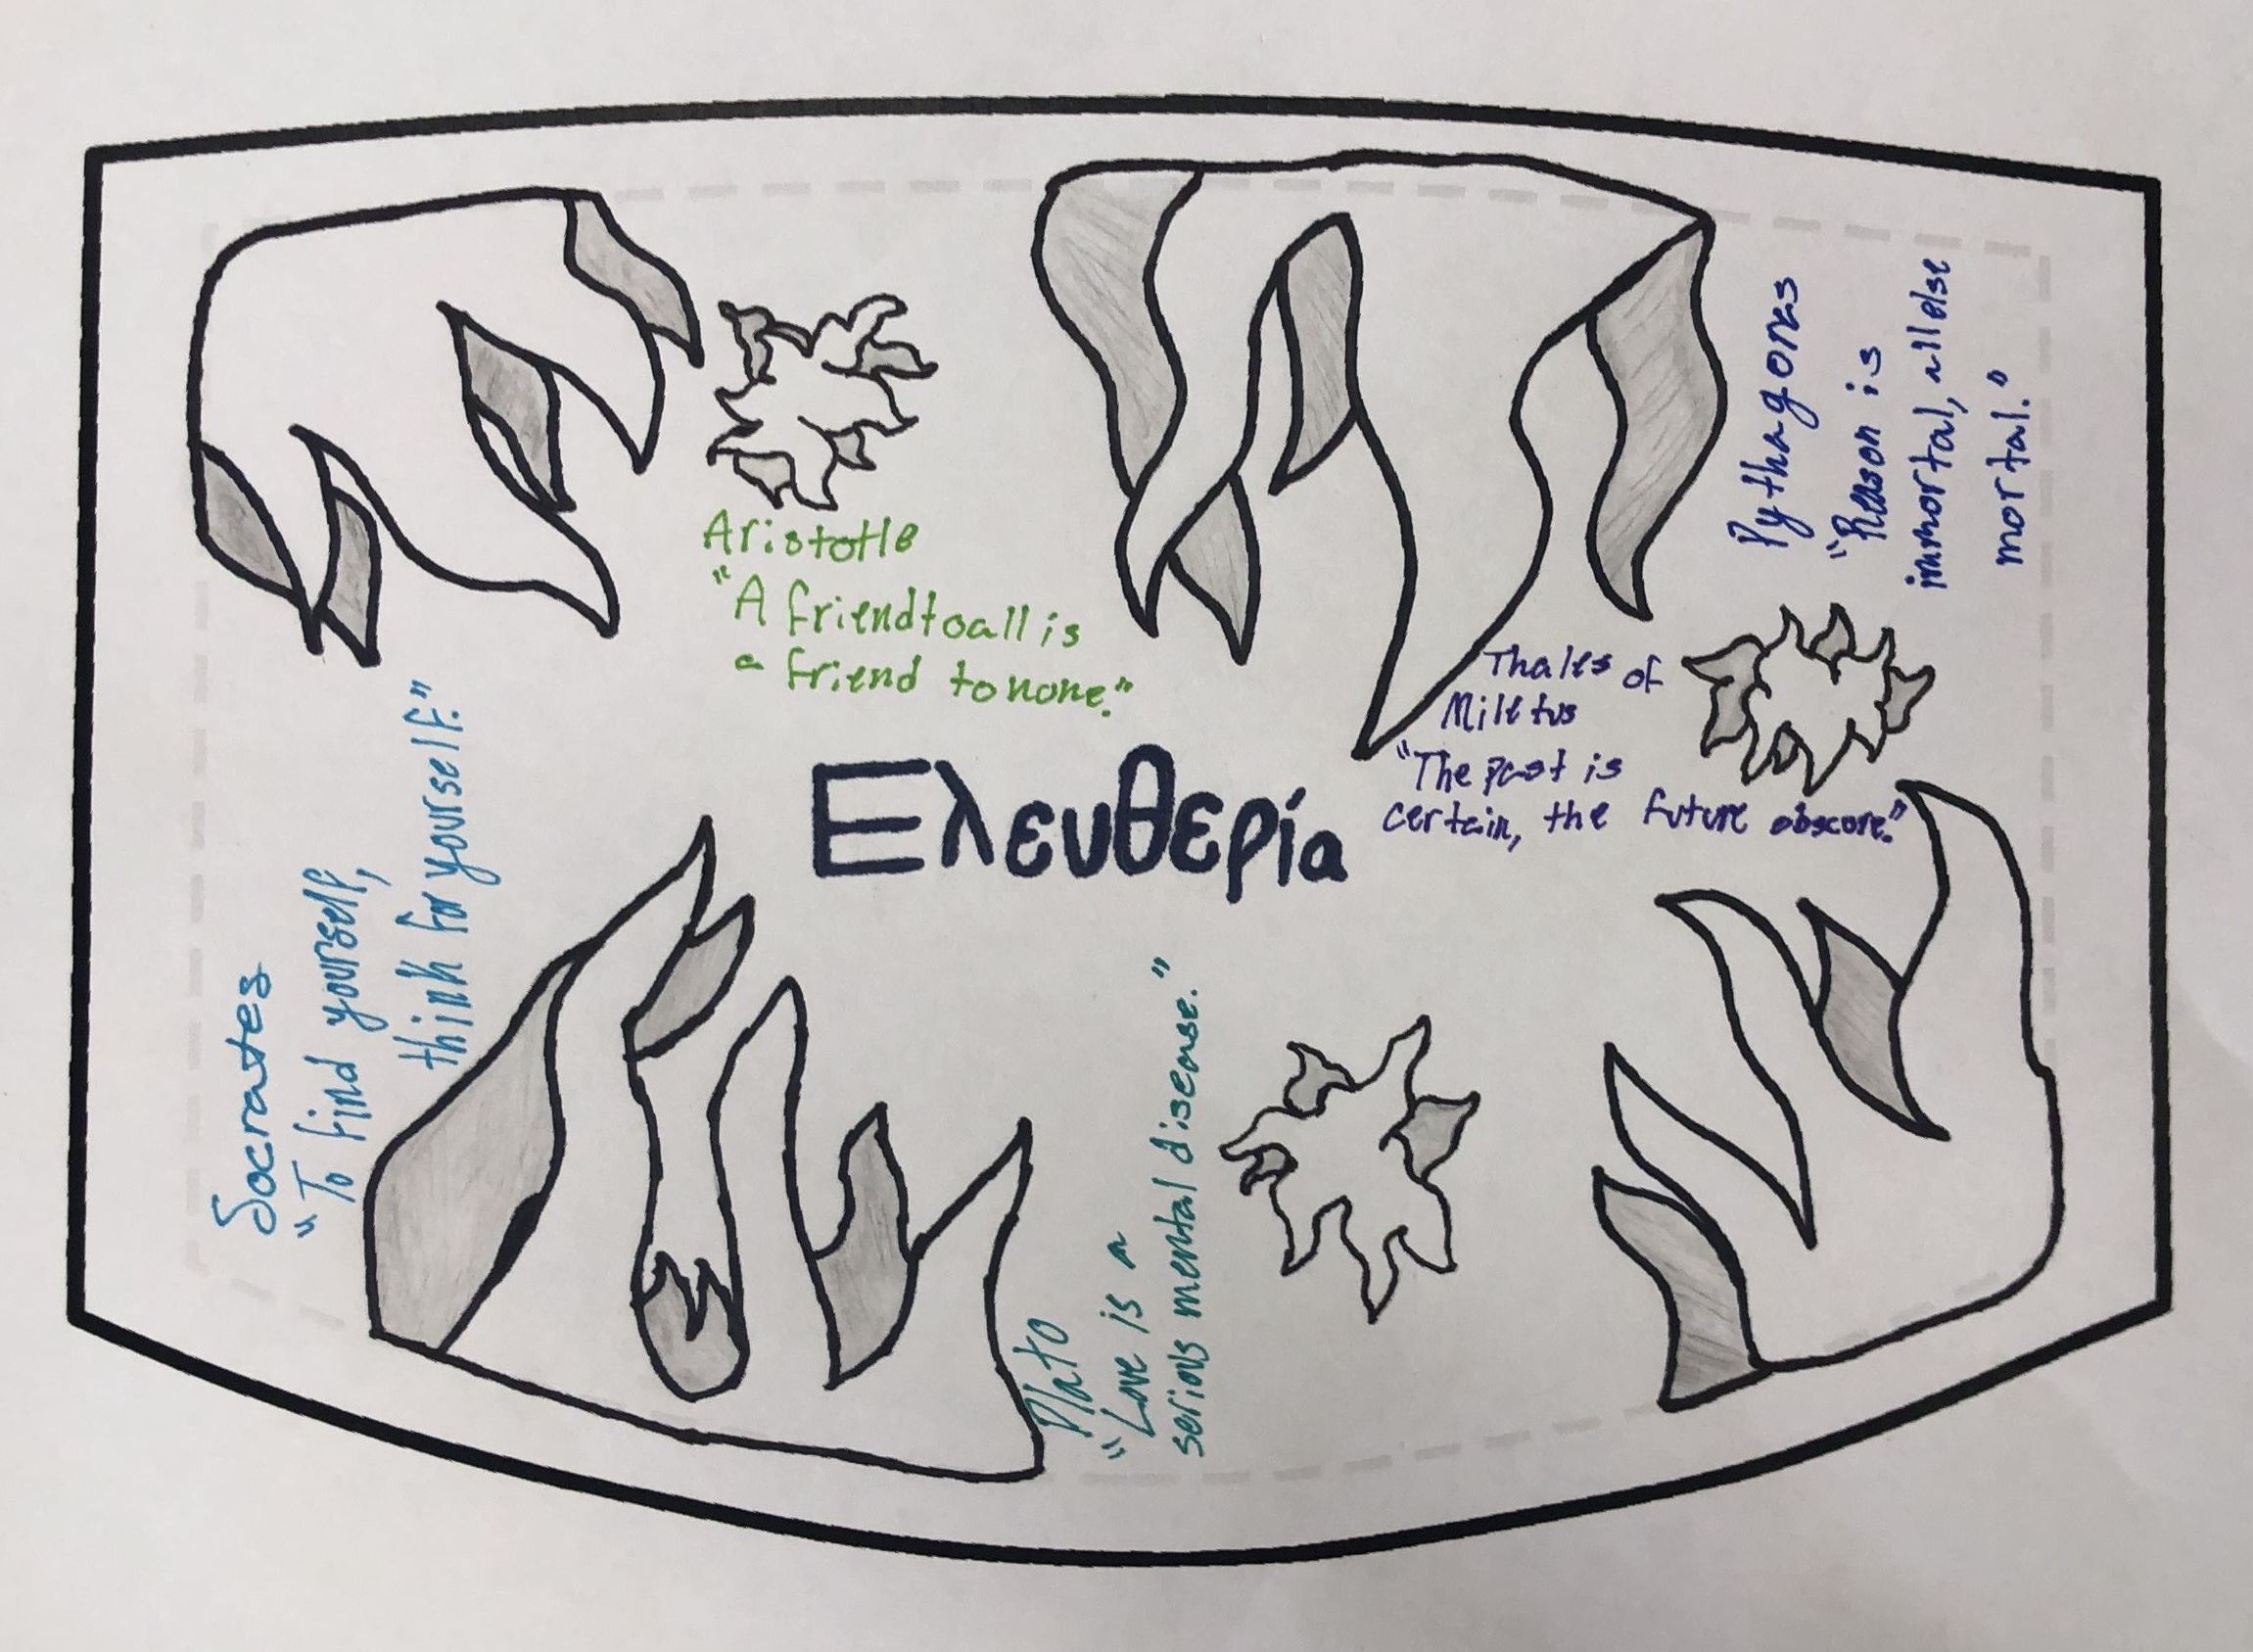 Aristotle
"A friend to all is
a friend to none."
Pythagores
"Reason is
immortal, all else
mortal."
Thales of
Miletus
"The past is
certain, the future obscore."
Ελευθερία
Socrates
"To find yourself,
think for yourself."
Plato
"Love is a
serious mental disease."